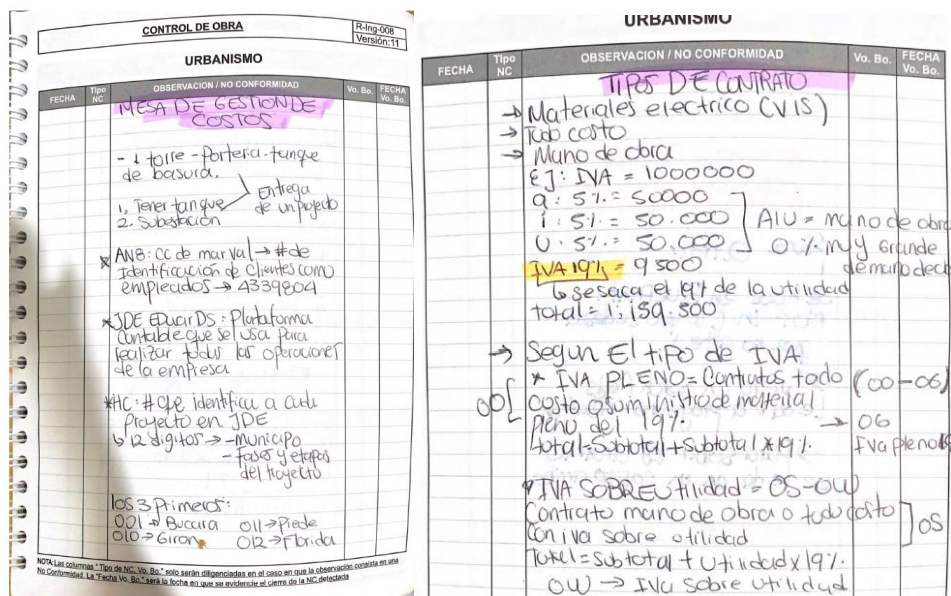 CONTROL DE OBRA
R-Ing-008
Versión:11
URBANISMO
FECHA
Tipo NC
OBSERVACION / NO CONFORMIDAD
Vo. Bo.
FECHA Vo. Bo.
MESA DE GESTION DE
COSTOS
- 1 torre - Porteria - tanque
de basura.
1. Tener tanque
2. Subestación
Entrega
de un proyecto
* ANB: CC de marval → # de
Identificación de clientes como
empleados → 4339804
* JDE EDUarDS: Plataforma
contable que se usa para
realizar todas las operaciones
de la empresa
* HC: # que identifica a cada
Proyecto en JDE
↳ 12 digitos → - Municipo
- fases y etapas
del Proyecto
los 3 Primeros:
001 → Bucara 011 → Piede
010 → Giron 012 → Florida
NOTA: Las columnas "Tipo de NC, Vo. Bo." solo serán diligenciadas en el caso en que la observación consista en una
No Conformidad. La "Fecha Vo. Bo." será la fecha en que se evidencie el cierre de la NC detectada
URBANISMO
FECHA
Tipo NC
OBSERVACION / NO CONFORMIDAD
Vo. Bo.
FECHA Vo. Bo.
TIPOS DE CONTRATO
→ Materiales electrico (VIS)
→ Todo costo
→ Mano de obra
EJ: IVA = 1000000
a: 5% = 50000
i: 5% = 50.000
U: 5% = 50.000
AIU = mano de obra
O % muy grande
de mano de ob
IVA 19% = 9500
↳ se saca el 19% de la utilidad
total = 1,159.500
→ Segun El tipo de IVA
* IVA PLENO = Contratos todo
costo o suministro de material
pleno del 19%.
total = Subtotal + Subtotal * 19%
001
(00-06)
→ 06
IVA pleno 19
* IVA SOBRE Utilidad = OS-OW
Contrato mano de obra o todo costo
con iva sobre utilidad
Total = Subtotal + Utilidad x 19%
OW → IVA sobre utilidad
OS